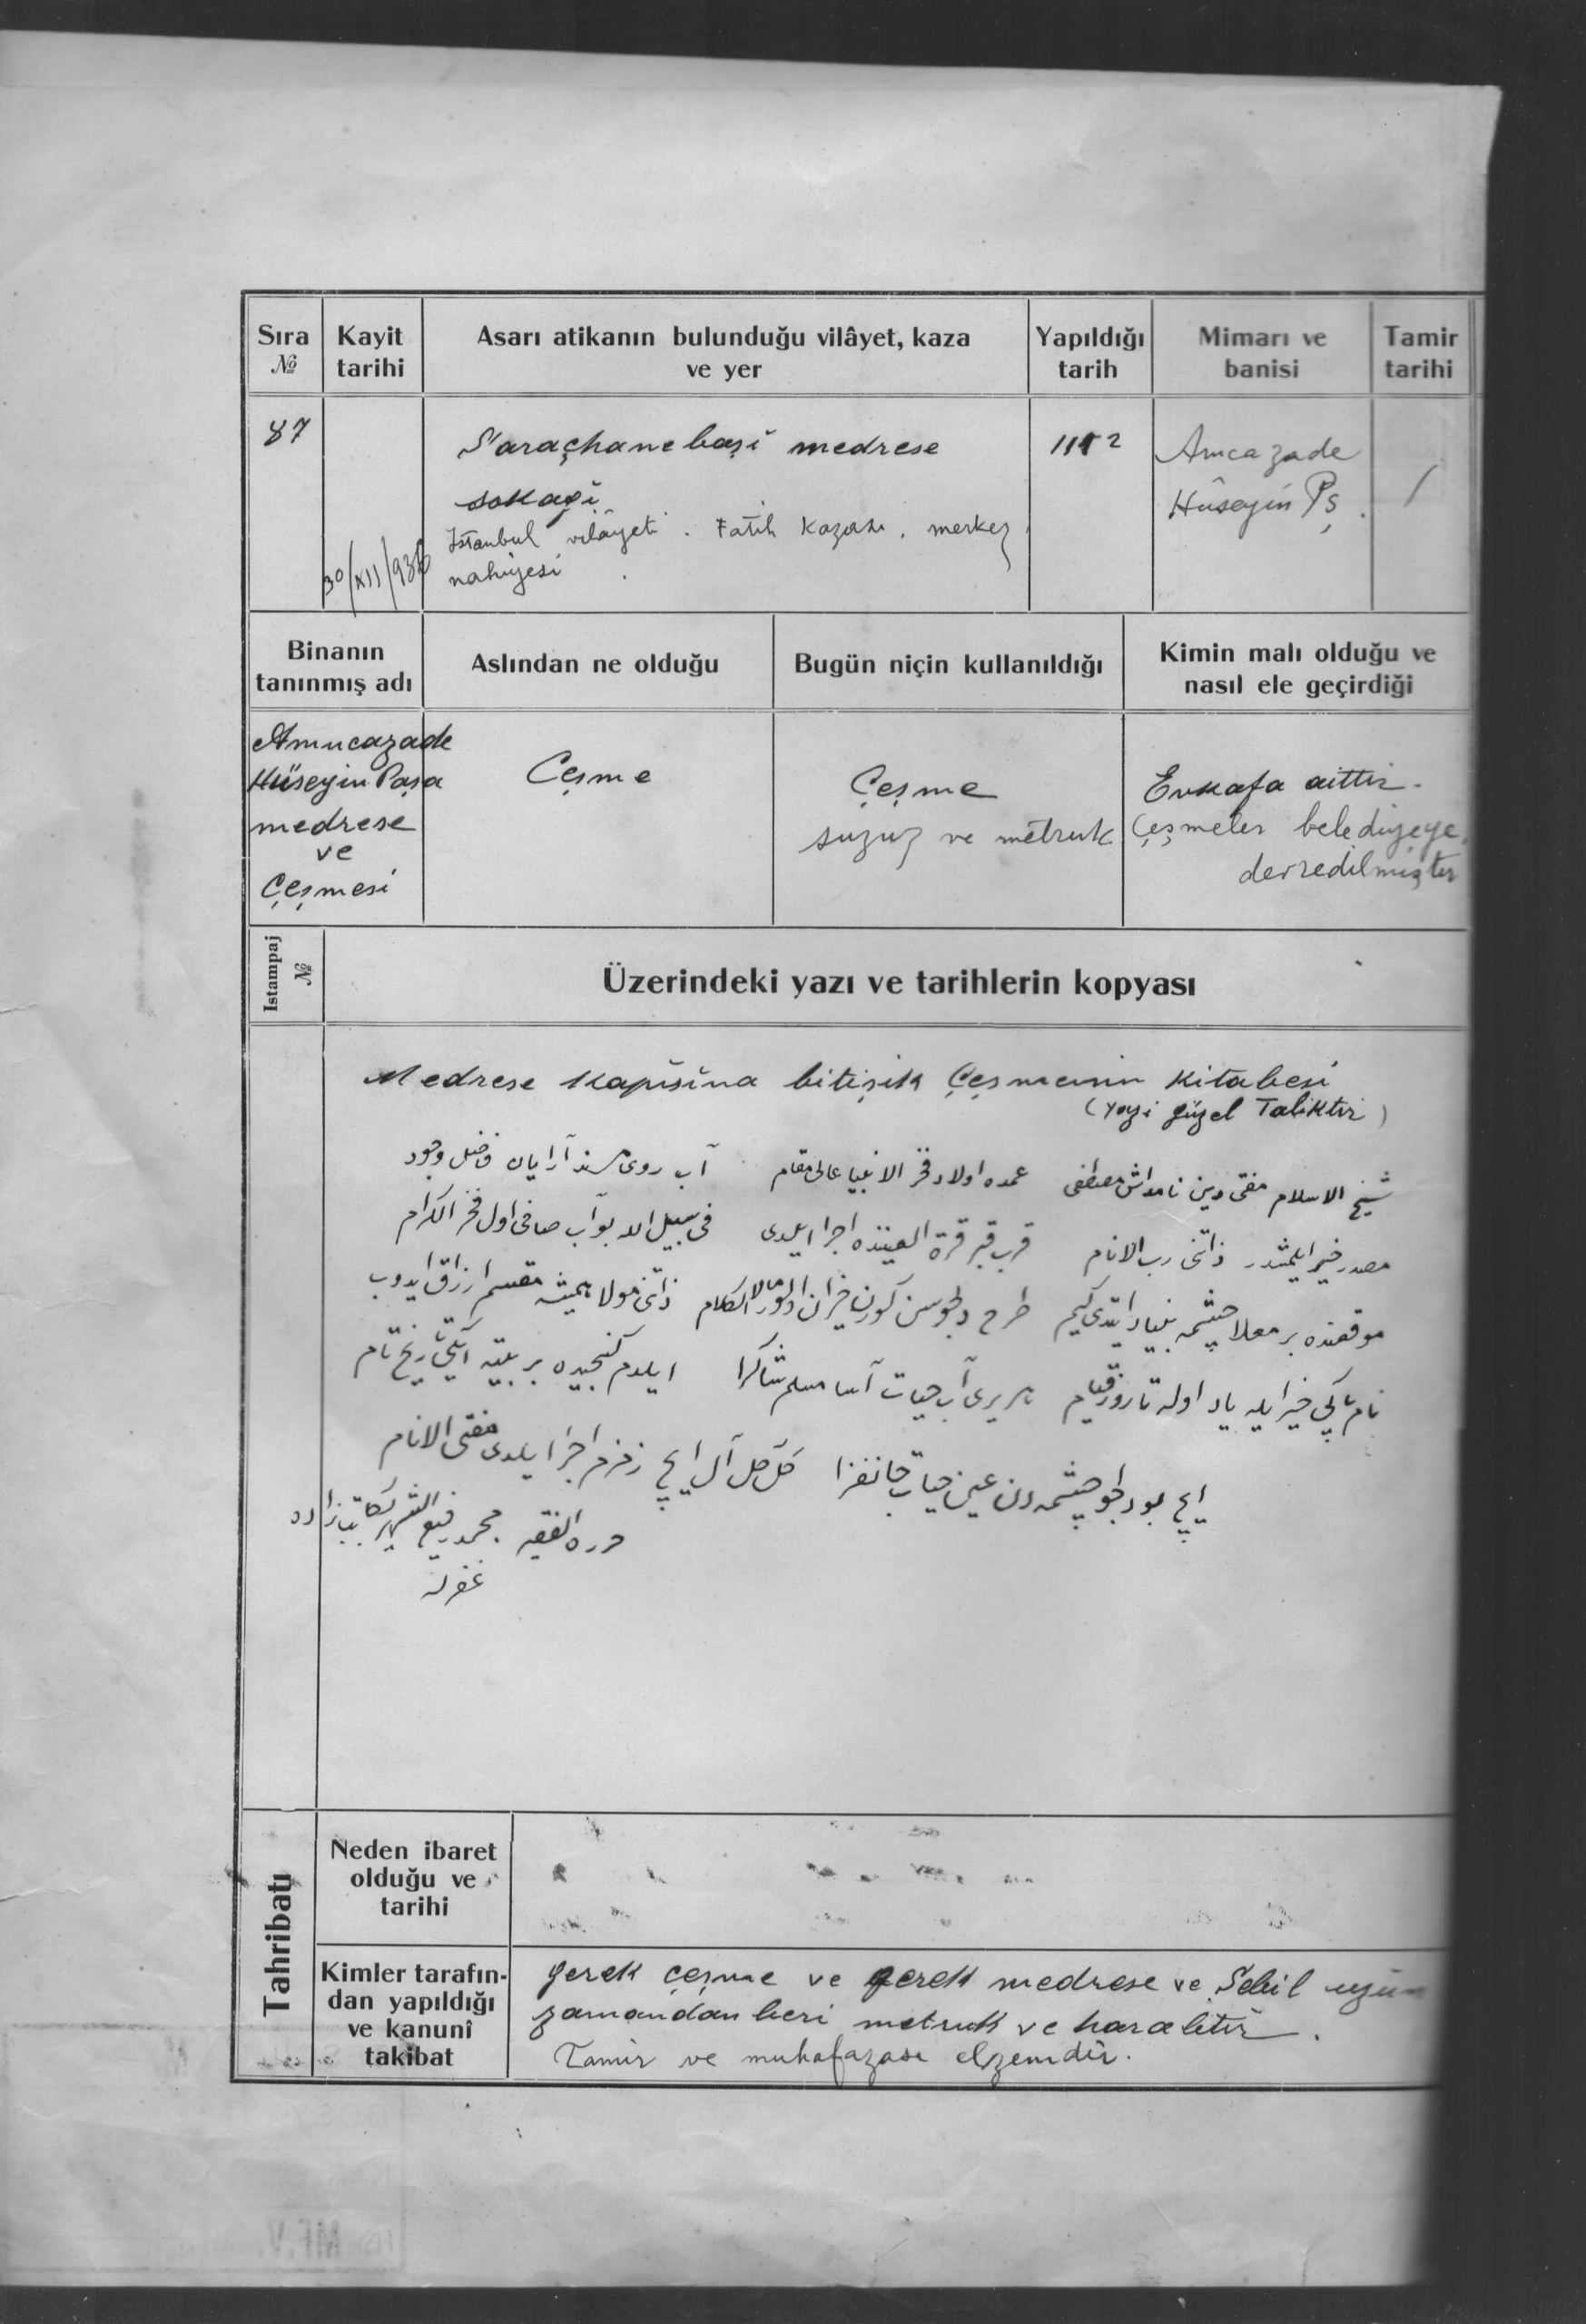 Sıra
№
Kayit
tarihi
Asarı atikanın bulunduğu vilâyet, kaza
ve yer
Yapıldığı
tarih
Mimarı ve
banisi
Tamir
tarihi
87
30/XII/936
Saraçhane başi medrese
sokaği
İstanbul vilâyeti . Fatih kazası . merkez
nahiyesi
1152
Amcazade
Hüseyin Pş .
/
Binanın
tanınmış adı
Aslından ne olduğu
Bugün niçin kullanıldığı
Kimin malı olduğu ve
nasıl ele geçirdiği
Amucazade
Hüseyin Paşa
medrese
ve
Çeşmesi
Çeşme
Çeşme
suzuz ve metruk
Evkafa aittir.
Çeşmeler belediyeye
devredilmiştir
Istampaj
№
Üzerindeki yazı ve tarihlerin kopyası
Medrese kapısına bitişik Çeşmenin kitabesi
(Yazi güzel Taliktir)
شيخ الاسلام مفتى دين نامداش مصطفى عمده اولاد فخر الانبيا عالى مقام آب روى مسند آرايان فضل وجود
مصدر خير ايلمشدر ذاتنى رب الانام قرب قبر قرة العيننده اجرا ايلدى فى سبيل الله بو آب صافى اول فخر الكرام
موقعنده بر معلا چشمه بنياد ايتدى كيم طرح دلجوسن كورن حيران اولور لا كلام ذاتنى مولا هميشه مقسم ارزاق ايدوب
نام پاكى خير ايله ياد اوله تا روز قيام آب حيات آسا شاكرا ايلدم بر بيتده ايكى تاريخ تام
ايچ بو دلجو چشمه دن عين حيات جانفزا كل آل ايچ زمزم اجرا ايلدى مفتى الانام
حرره الفقير محمد رفيع الشهير بكاتب زاده
غفر له
Tahribatı
Neden ibaret
olduğu ve
tarihi
Kimler tarafın-
dan yapıldığı
ve kanunî
takibat
gerek çeşme ve gerek medrese ve Sebil uzun
zamandan beri metruk ve harabtir .
Tamir ve muhafazası elzemdir.